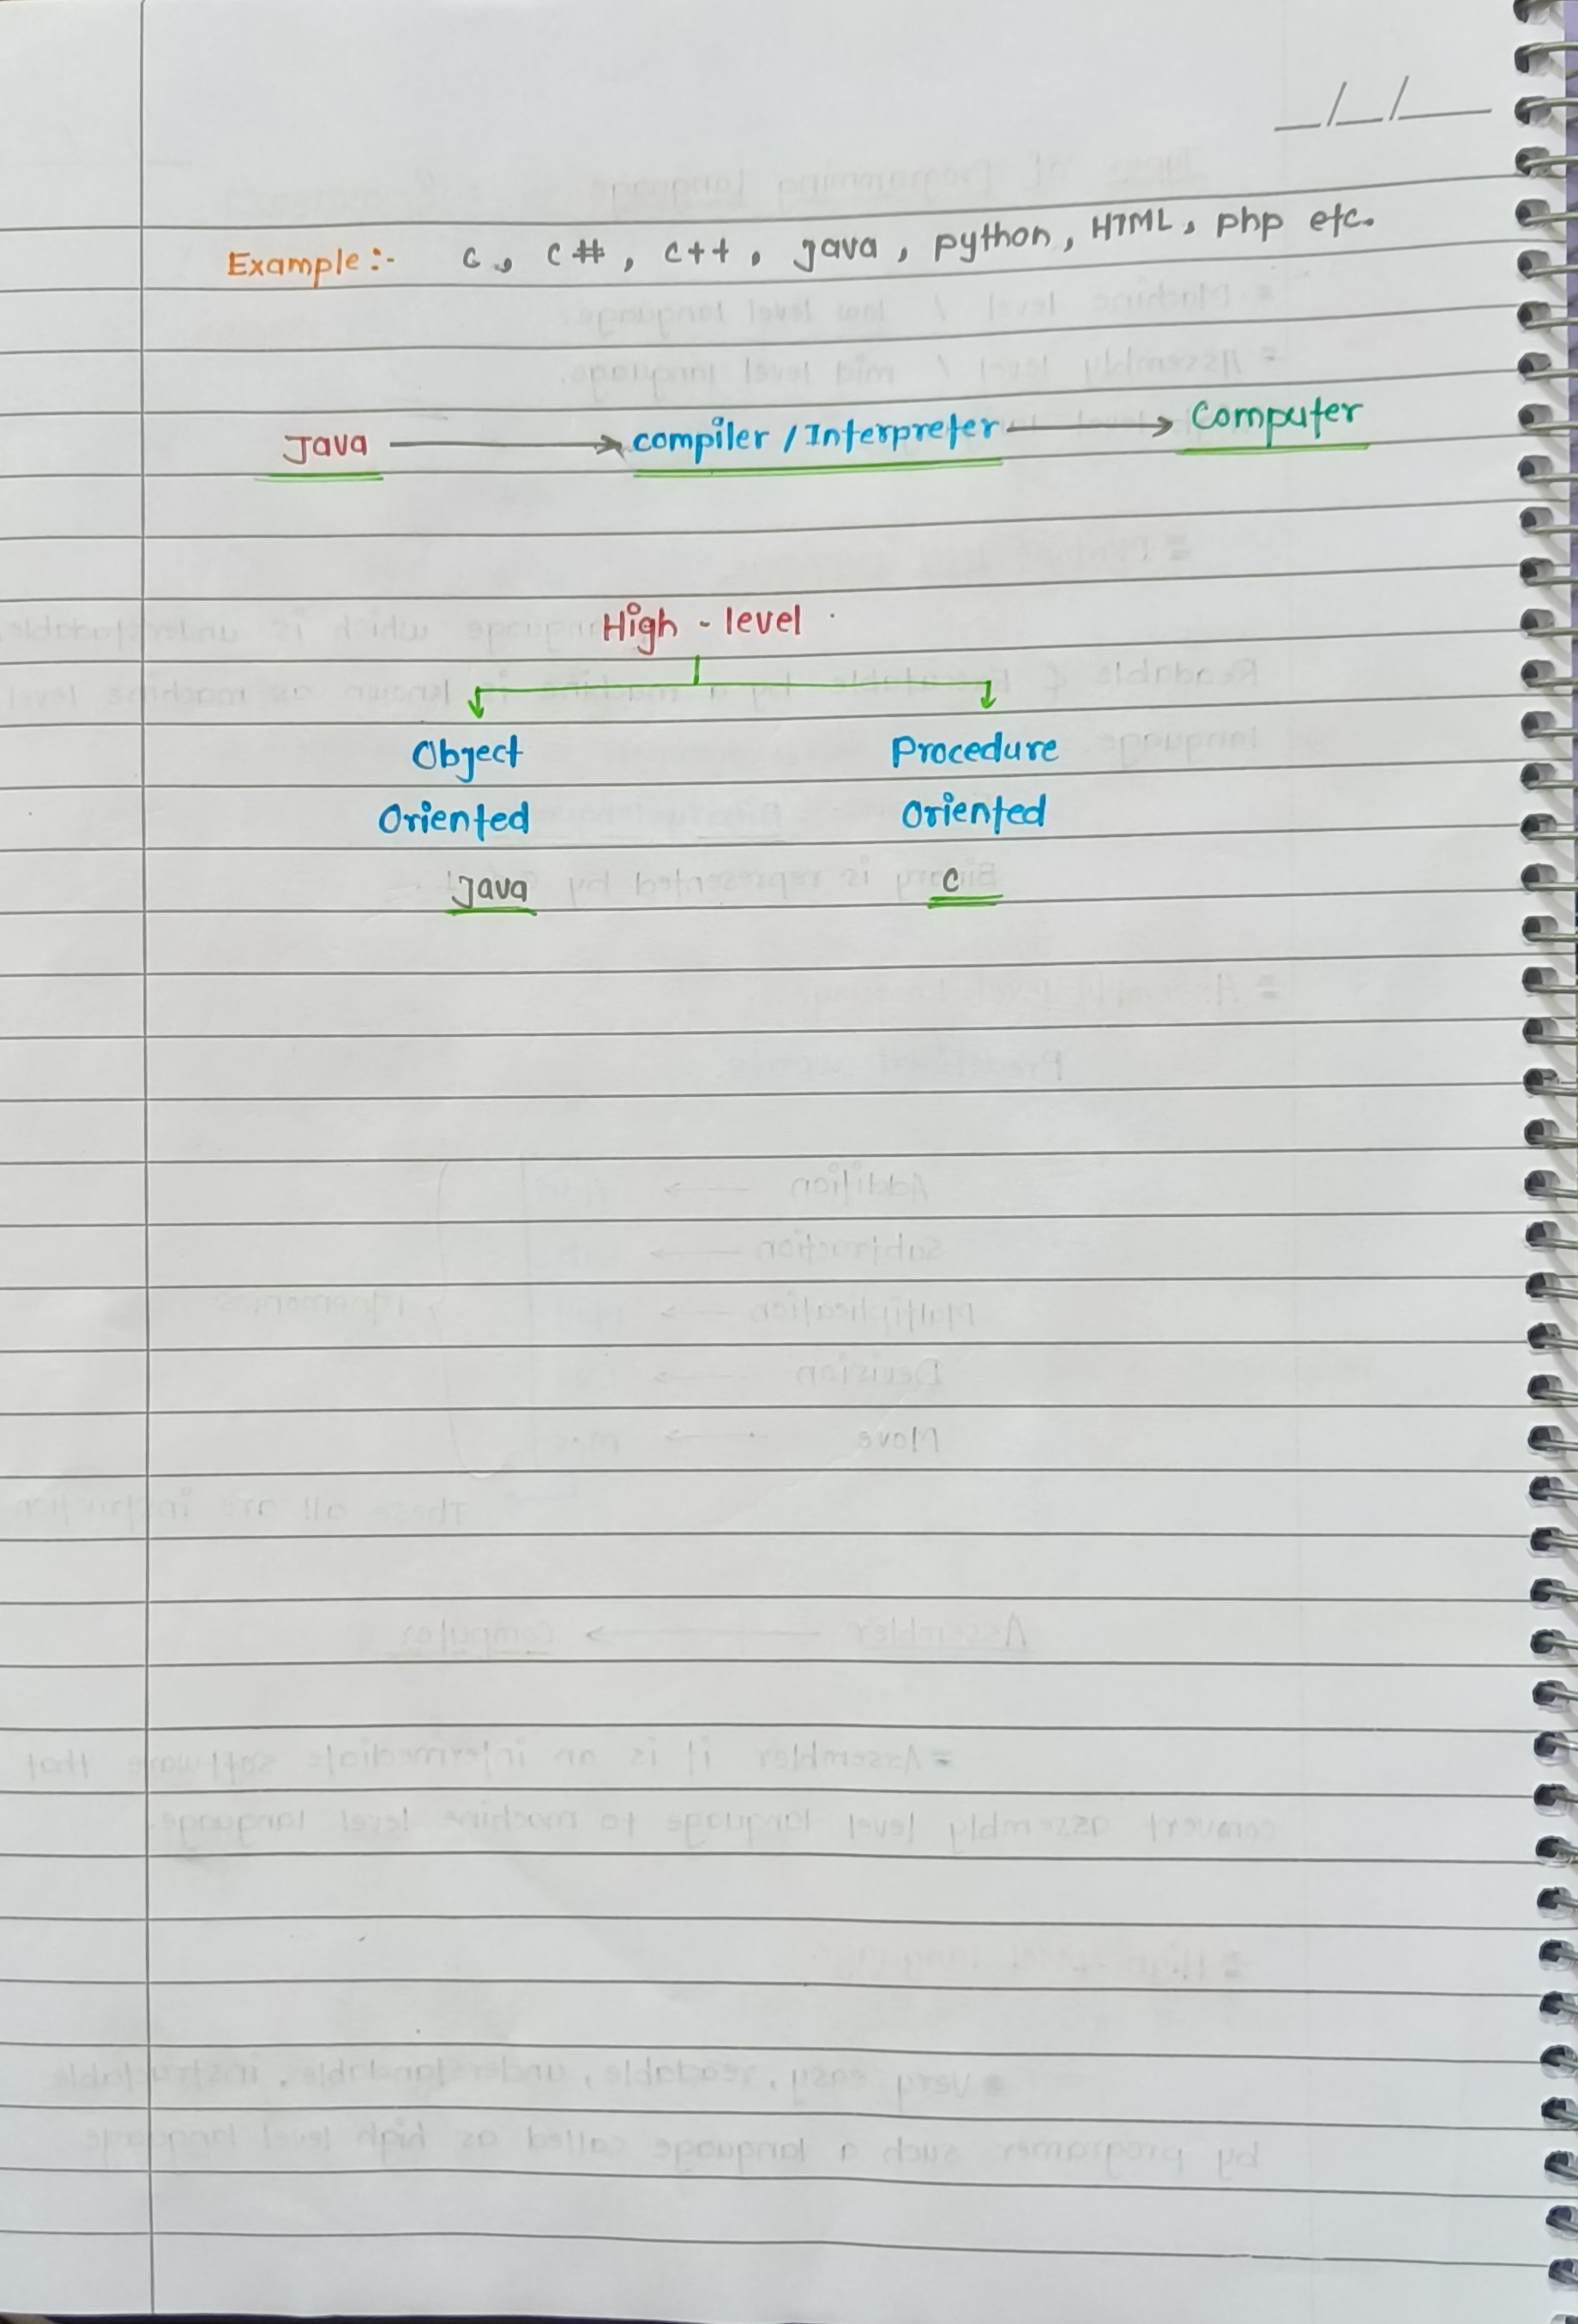 __/__/____
Example:- c, c#, c++, java, python, HTML, php etc.
Java → compiler / Interpreter → Computer
High - level
Object Procedure
Oriented Oriented
Java C